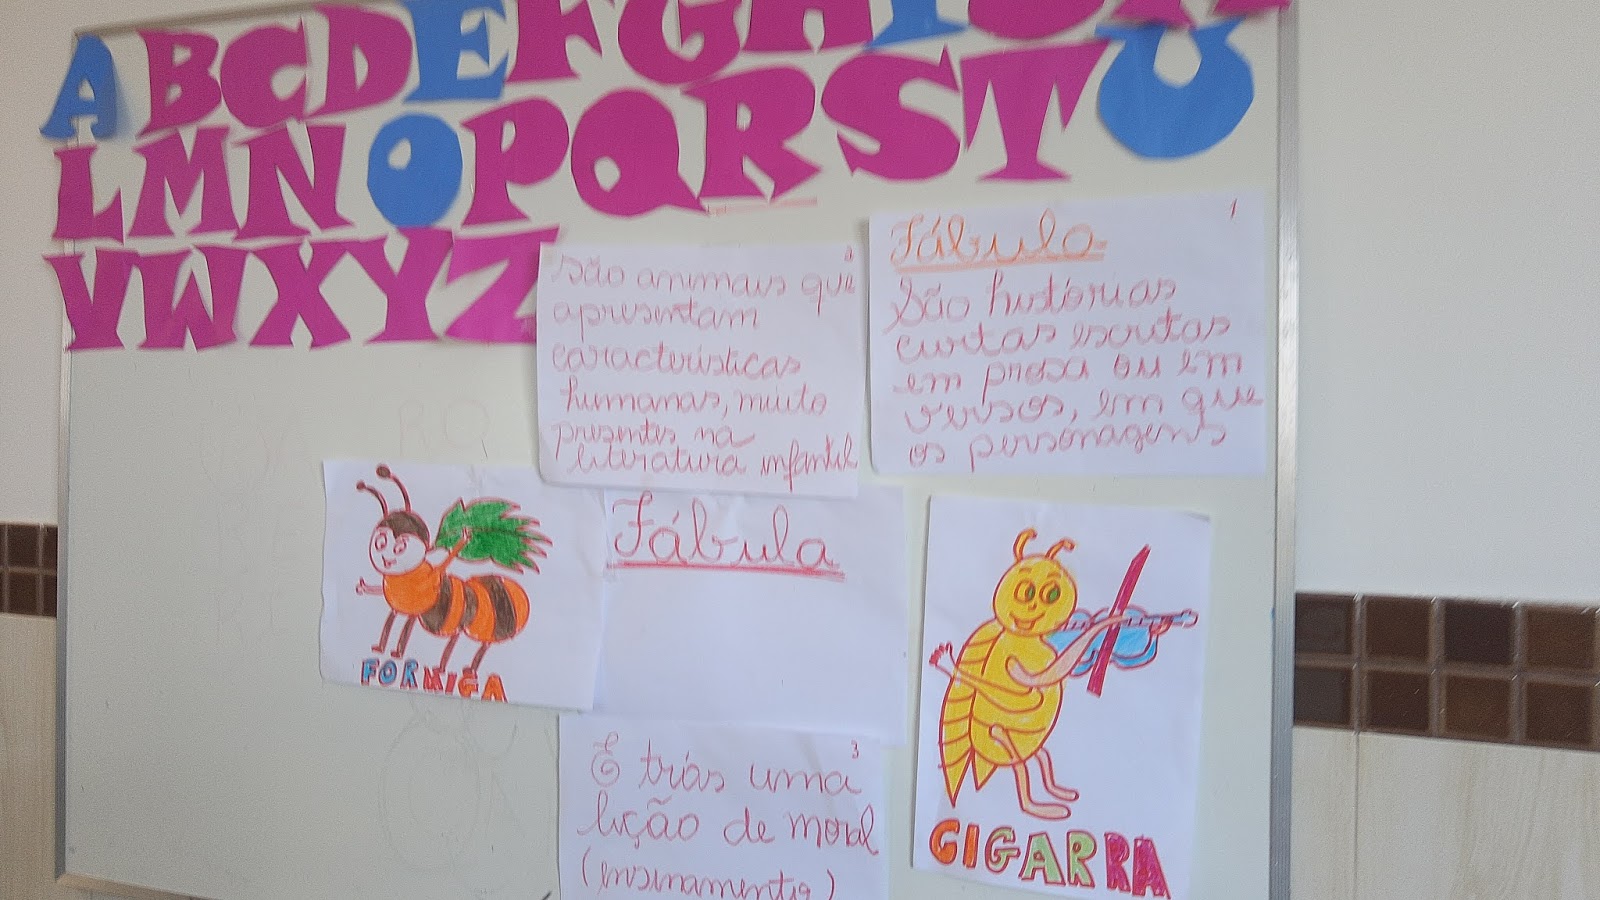 ABCDEFGHIJK
LMNOPQRSTU
VWXYZ
1
Fábula
São histórias
curtas escritas
em prosa ou em
versos, em que
os personagens
2
São animais que
apresentam
características
humanas, muito
presentes na
literatura infantil
Fábula
FORMIGA
3
E trás uma
lição de moral
(ensinamento)
GIGARRA